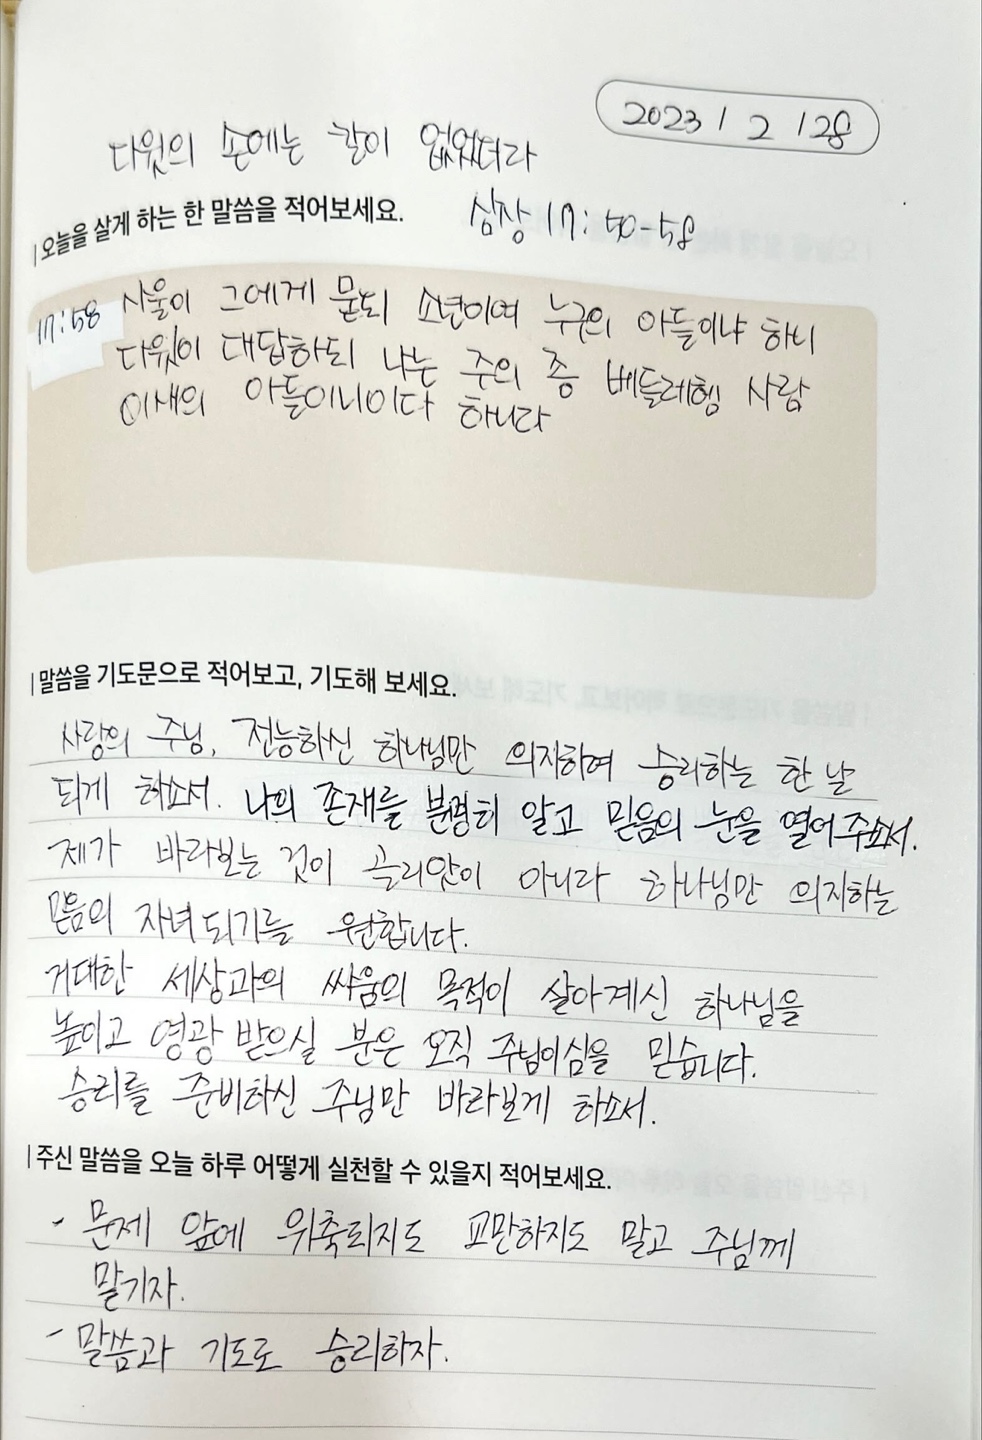 2023 / 2 / 28
다윗의 손에는 칼이 없었더라
오늘을 살게 하는 한 말씀을 적어보세요.
삼상 17:50-58
17:58 사울이 그에게 묻되 소년이여 누구의 아들이냐 하니
다윗이 대답하되 나는 주의 종 베들레헴 사람
이새의 아들이니이다 하니라
말씀을 기도문으로 적어보고, 기도해 보세요.
사랑의 주님, 전능하신 하나님만 의지하여 승리하는 한 날
되게 하소서. 나의 존재를 분명히 알고 믿음의 눈을 열어주소서.
제가 바라보는 것이 골리앗이 아니라 하나님만 의지하는
믿음의 자녀되기를 원합니다.
거대한 세상과의 싸움의 목적이 살아계신 하나님을
높이고 영광 받으실 분은 오직 주님이심을 믿습니다.
승리를 준비하신 주님만 바라보게 하소서.
주신 말씀을 오늘 하루 어떻게 실천할 수 있을지 적어보세요.
- 문제 앞에 위축되지도 교만하지도 말고 주님께
맡기자.
- 말씀과 기도로 승리하자.